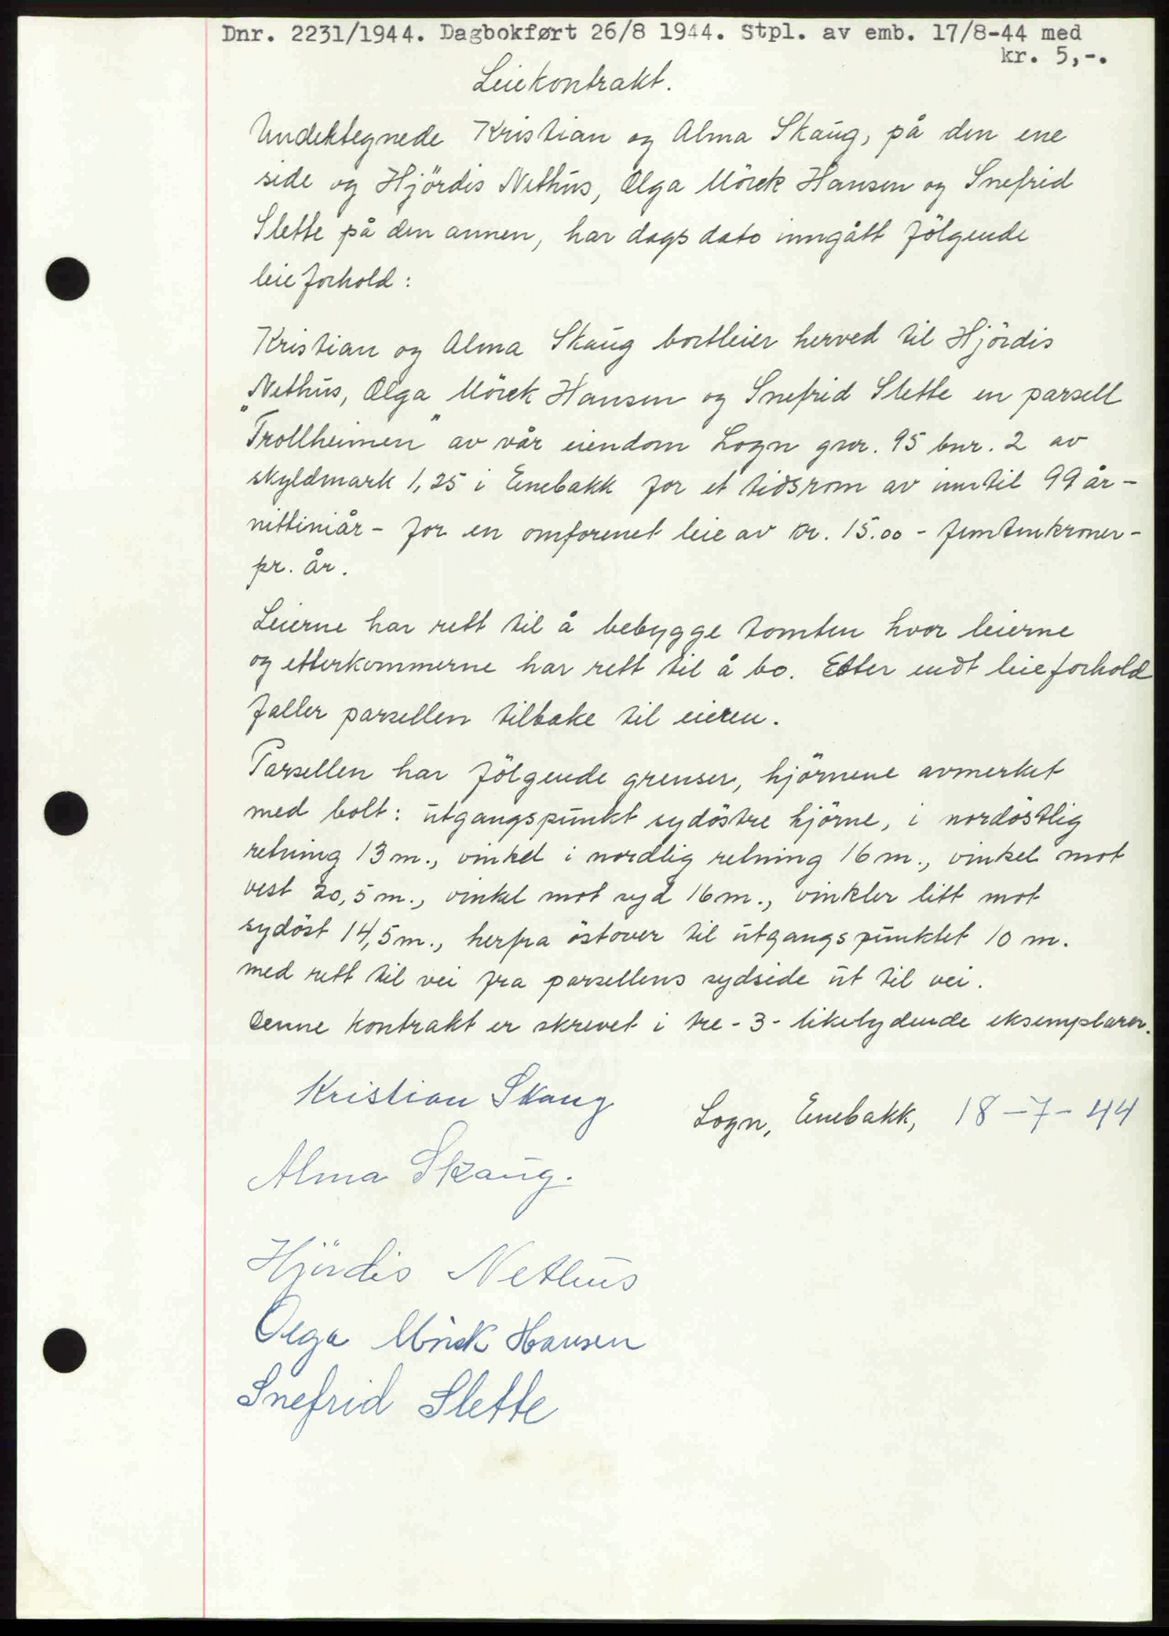 Dnr. 2231/1944. Dagbokført 26/8 1944. Stpl. av emb. 17/8-44 med
kr. 5,-.
Leiekontrakt.
Undertegnede Kristian og Alma Skaug, på den ene
side og Hjördis Nethus, Olga Mörck Hansen og Snefrid
Slette på den annen, har dags dato inngått följgende
leieforhold:
Kristian og Alma Skaug bortleier herved til Hjördis
Nethus, Olga Mörck Hansen og Snefrid Slette en parsell
"Trollheimen" av vår eiendom Logn gnr. 95 bnr. 2 av
skyldmark 1,25 i Enebakk for et tidsrom av inntil 99 år -
nittiniår - for en omforenet leie av kr. 15.00 - femtenkroner -
pr. år.
Leierne har rett til å bebygge tomten hvor leierne
og etterkommerne har rett til å bo. Etter endt leieforhold
faller parsellen tilbake til eieren.
Parsellen har fölgende grenser, hjörnene avmerket
med bolt: utgangspunkt sydöstre hjörne, i nordöstlig
retning 13 m., vinkel i nordlig retning 16 m., vinkel mot
vest 20,5 m., vinkel mot syd 16 m., vinkler litt mot
sydöst 14,5 m., herfra östover til utgangspunktet 10 m.
med rett til vei fra parsellens sydside ut til vei.
Denne kontrakt er skrevet i tre - 3 - likelydende eksemplarer.
Kristian Skaug
Logn, Enebakk, 18-7-44
Alma Skaug.
Hjördis Nethus
Olga Mörck Hansen
Snefrid Slette